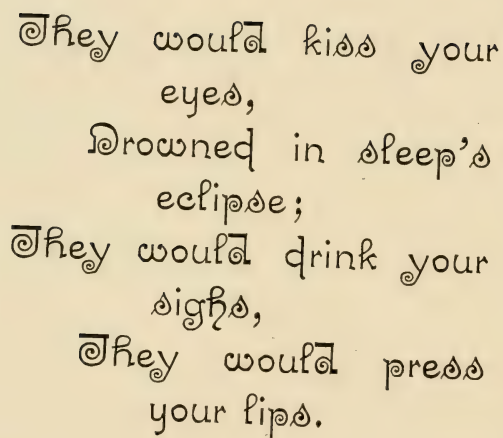 They would kiss your
eyes,
Drowned in sleep's
eclipse;
They would drink your
sighs,
They would press
your lips.